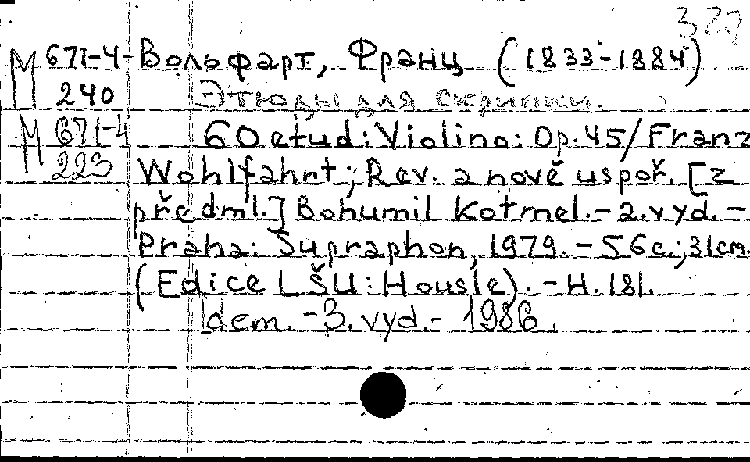 327
М 671-4 Вольфарт, Франц (1833-1884)
240 Этюды для скрипки.
М 671-4 60 etud: Violino: Op.45/Franz
223 Wohlfahrt; Rev. a nově uspoř. [z
předml.] Bohumil Kotmel.-2.vyd.-
Praha: Supraphon, 1979.-56c.;31cm.
(Edice LŠU: Housle).-H.181.
Idem.-3.vyd.-1986.